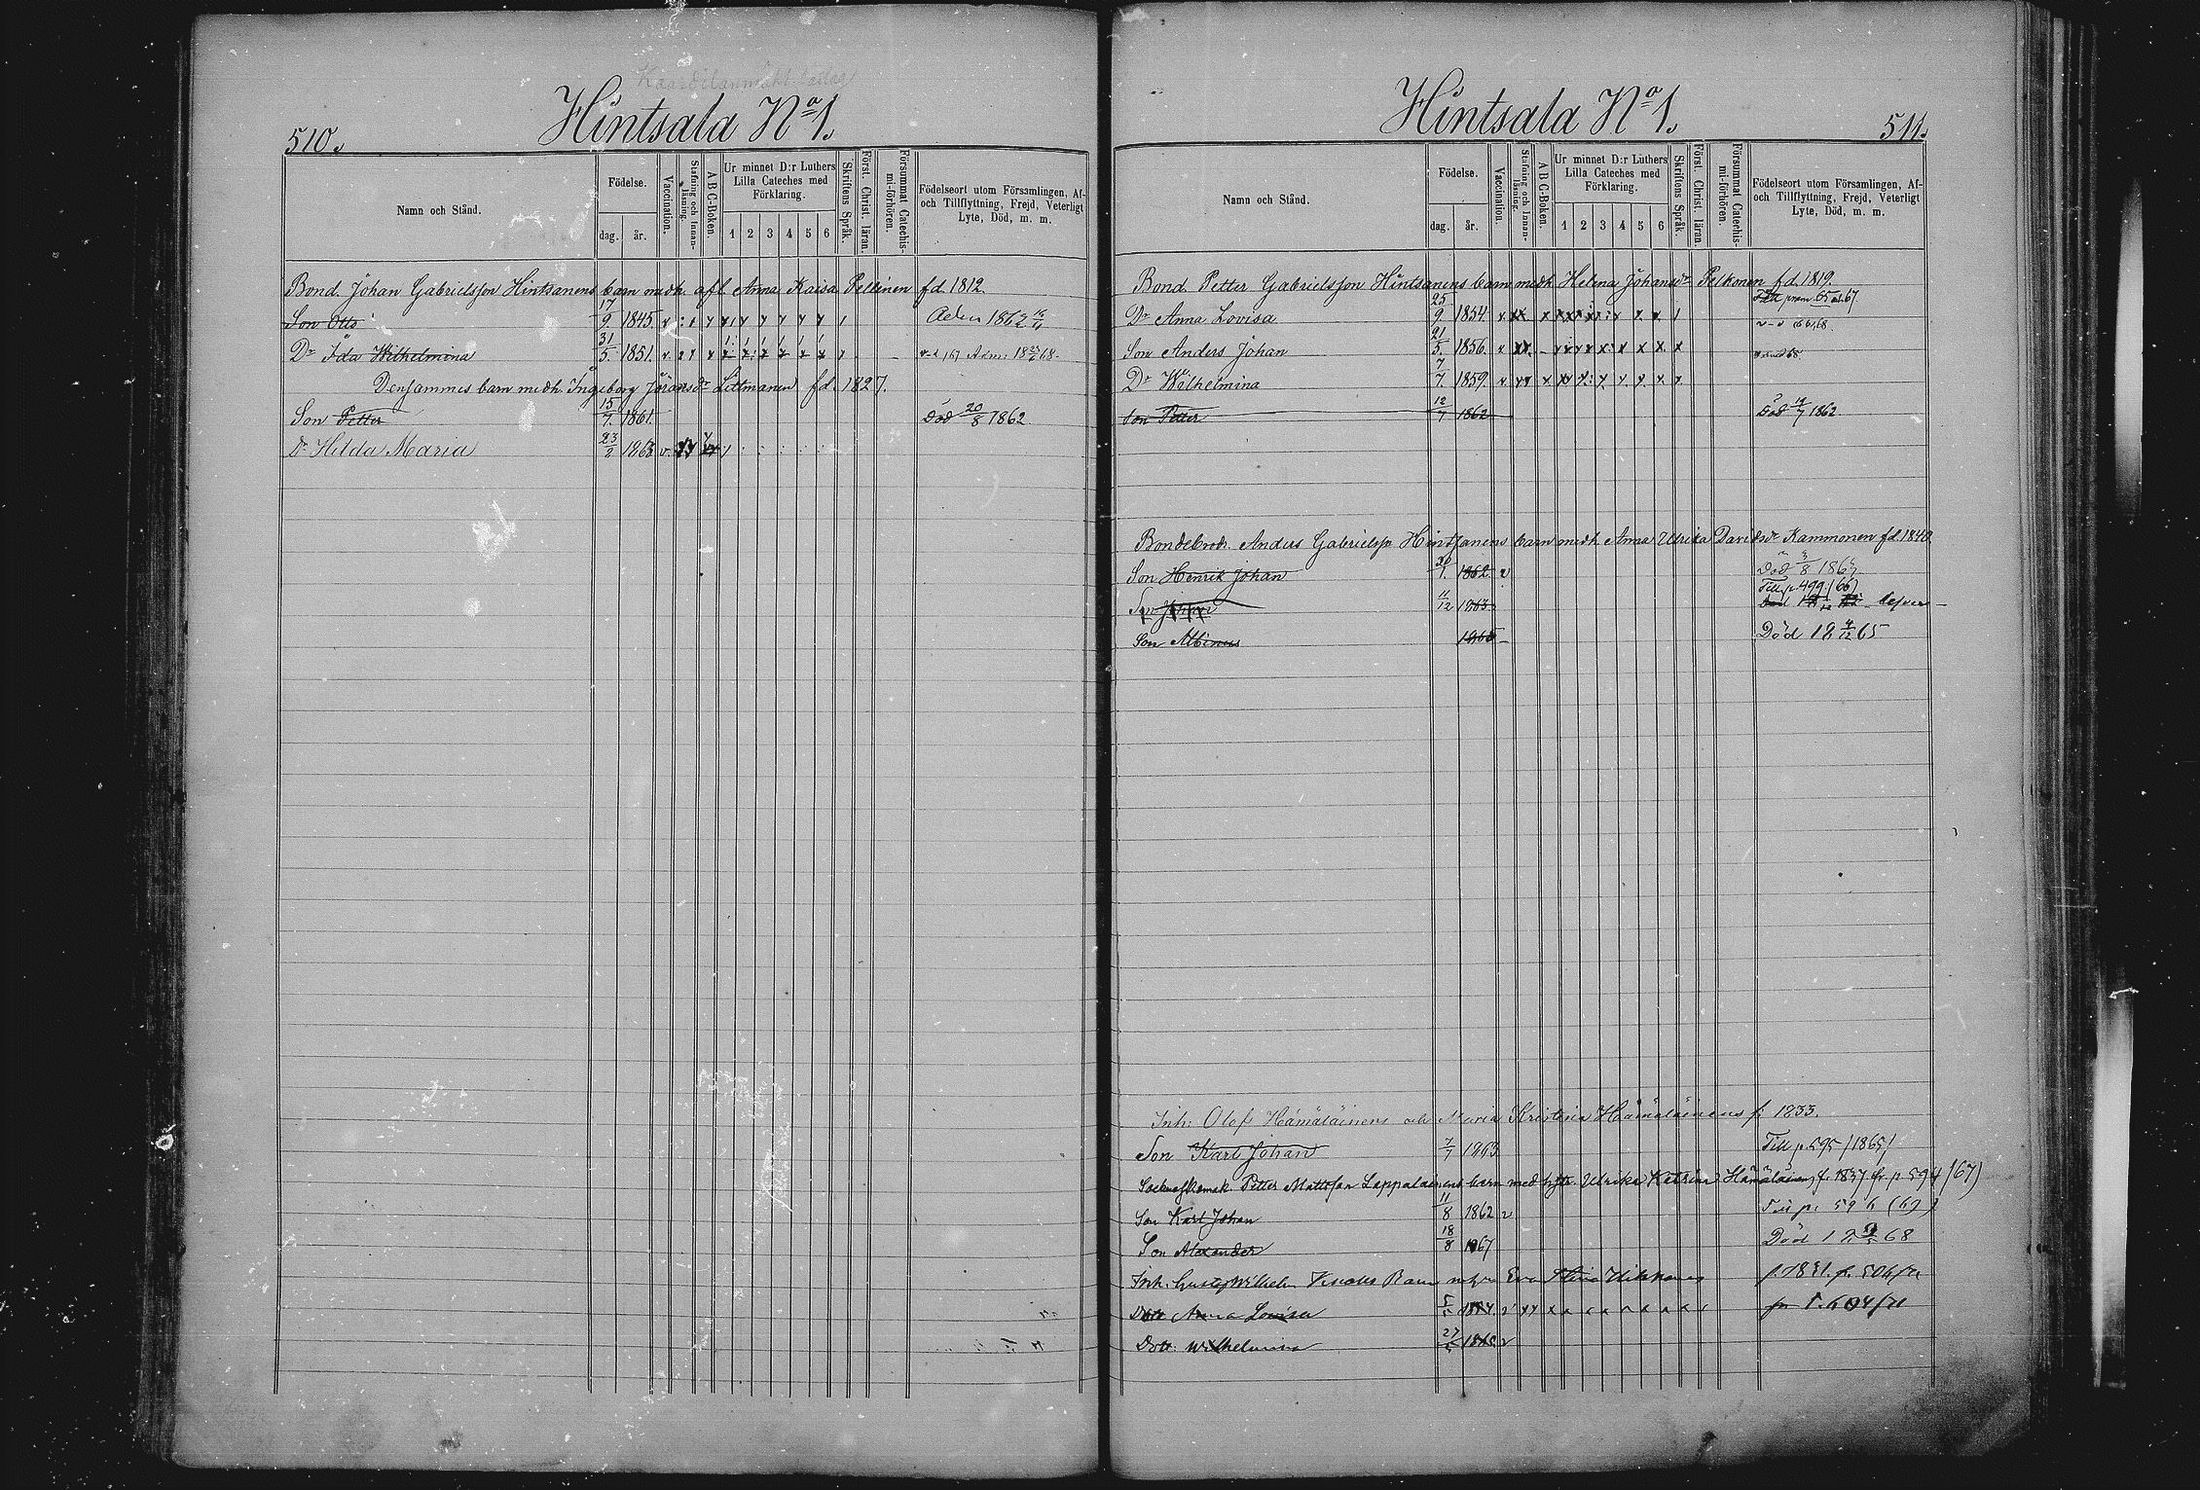 510.
Hintsala No 1.
Namn och Stånd.
Födelse.
dag.
år.
Vaccination.
Stafning och Innan-läsning.
A B C-Boken.
Ur minnet D:r Luthers
Lilla Cateches med
Förklaring.
1 2 3 4 5 6
Skriftens Språk.
Först. Christ. läran.
Försummat Catechis-mi-förhören.
Födelseort utom Församlingen, Af-
och Tillflyttning, Frejd, Veterligt
Lyte, Död, m. m.
Bond. Johan Gabrielsson Hintsanens barn medh. afl. Anna Kaisa Pellinen fd. 1812.
Son Otto 17/9 1845
Dr Ida Wilhelmina 31/5 1851.
Densammes barn medh Ingeborg Jöransdr Littmanen fd. 1827.
Son Petter 15/7 1861. Död 20/8 1862
Dr Hilda Maria 23/2 1863
511.
Hintsala No 1.
Namn och Stånd.
Födelse.
dag.
år.
Vaccination.
Stafning och Innan-läsning.
A B C-Boken.
Ur minnet D:r Luthers
Lilla Cateches med
Förklaring.
1 2 3 4 5 6
Skriftens Språk.
Först. Christ. läran.
Försummat Catechis-mi-förhören.
Födelseort utom Församlingen, Af-
och Tillflyttning, Frejd, Veterligt
Lyte, Död, m. m.
Bond. Petter Gabrielsson Hintsanens barn medh Helena Johansdr Pelkonen fd. 1819.
Dr Anna Lovisa 25/9 1854
Son Anders Johan 21/5. 1856.
Dr Wilhelmina 7/7. 1859.
Son Petter 12/7 1862 Död 14/7 1862
Bondebrodr. Anders Gabrielss. Hintsanens barn medh Anna Ulrika Davidsdr Kammonen fd. 1840
Son Henrik Johan 20/1. 1862 Död 3/8 1867
Son Johan 11/12 1863 Till p. 499 (66)
Son Albinus 1865 Död 18 4/12 65
Inh: Olof Hämäläinens och Maria Kristina Hämäläinens f. 1833.
Son Karl Johan 7/7 1863 Till p. 595 /1865/
Petter Mattsson Lappalainens barn med hstr. Ulrika Katrina Hämäläinen f. 1837 fr. p 594 (67)
Son Karl Johan 11/8 1862
Son Alexander 18/8 1867 Död
Inh. Gustaf Wilhelm
Dott Anna Lovisa
Dott. Wilhelmina